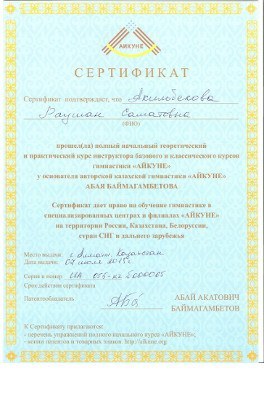 АЙКУНЕ
СЕРТИФИКАТ
Сертификат подтверждает, что Акимбекова
Раушан Саматовна
прошел(ла) полный начальный теоретический
и практический курс инструктора базового и классического курсов
гимнастики «АЙКУНЕ»
у основателя авторской казахской гимнастики «АЙКУНЕ»
АБАЯ БАЙМАГАМБЕТОВА
Сертификат дает право на обучение гимнастике в
специализированных центрах и филиалах «АЙКУНЕ»
на территории России, Казахстана, Белоруссии,
стран СНГ и дальнего зарубежья
Место выдачи г. Алматы, Казахстан
Дата выдачи 02 июля 2015г.
Серия и номер
Срок действия сертификата
Патентообладатель
АБАЙ АКАТОВИЧ
БАЙМАГАМБЕТОВ
К Сертификату прилагается:
- перечень упражнений полного начального курса «АЙКУНЕ»;
- копии патентов и товарных знаков http://aikune.org